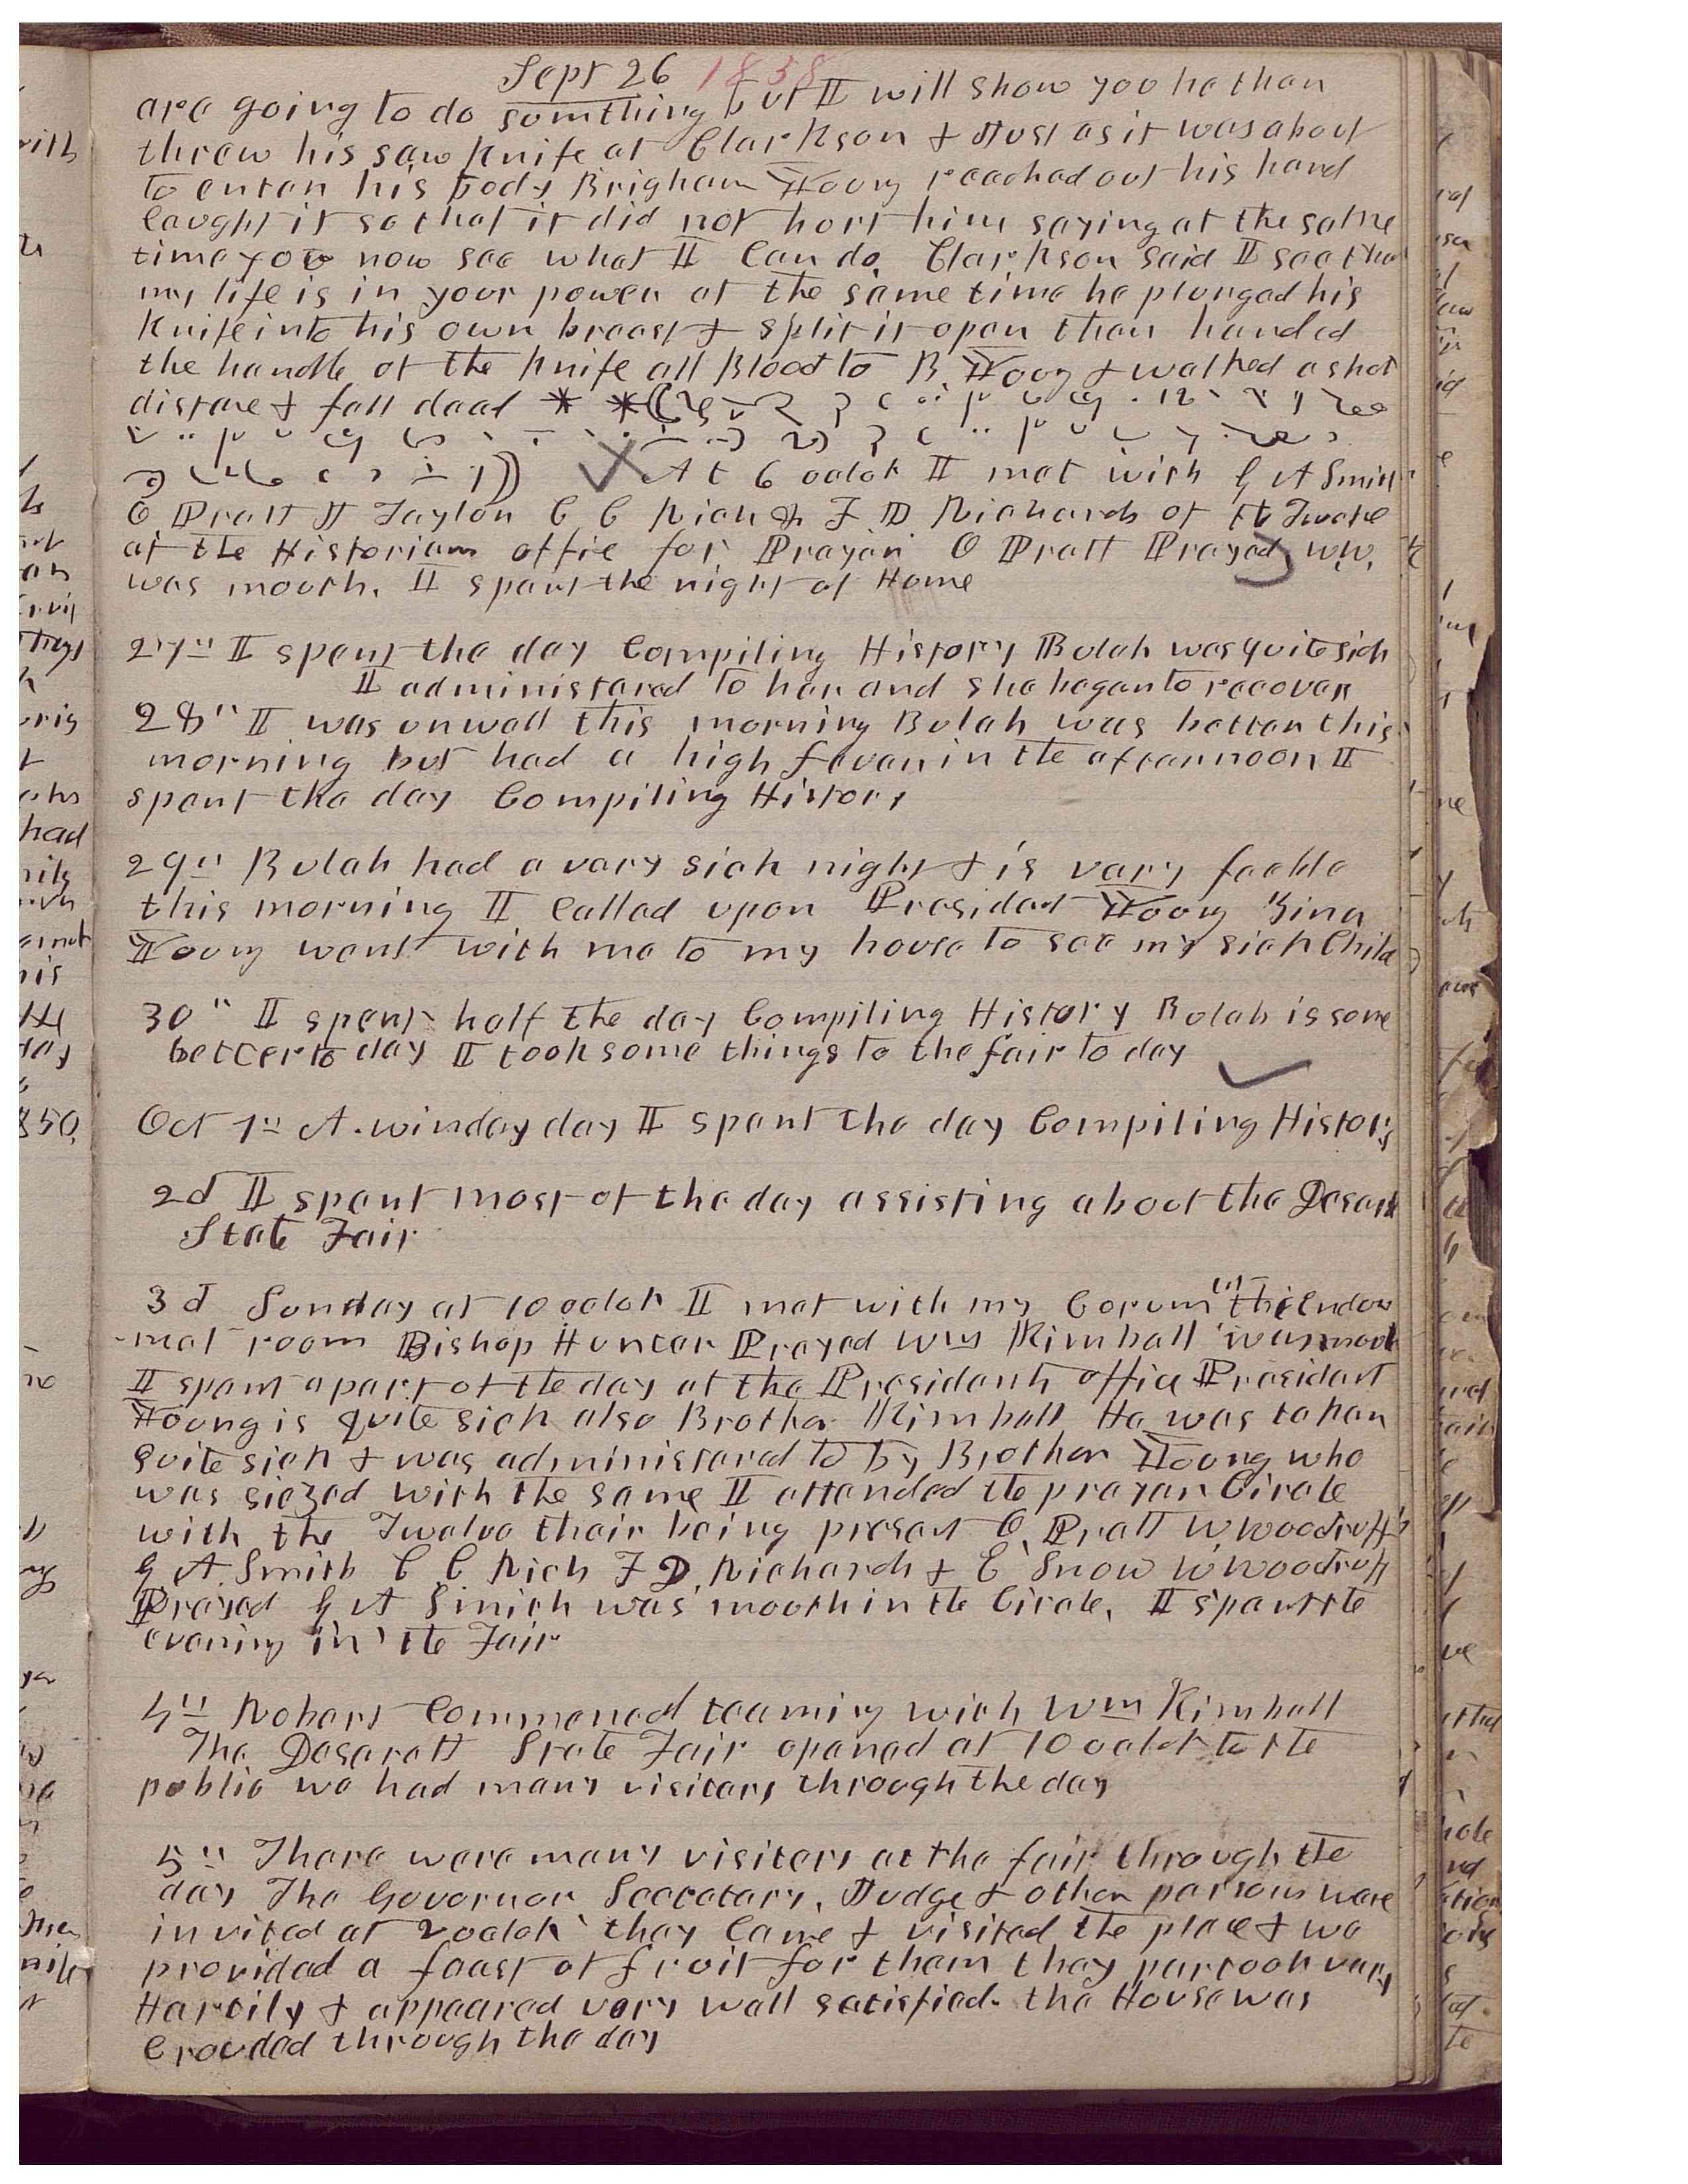 Sept 26 1858
are going to do somthing but I will show you he than
threw his saw knife at Clarkson & Just as it was about
to enter his body Brigham Young reached out his hand
Caught it so that it did not hort him saying at the same
time you now see what I Can do. Clarkson said I see that
my life is in your power at the same time he plunged his
knife into his own breast & split it open than handed
the handle of the knife all Blood to B. Young & walked a shot
distane & fell dead * *
At 6 oclok I met with G A Smith
O Pratt J Taylor C C Rich & F D Richards of the Twelve
at the Historians offie for Prayer O Pratt Prayed W.W.
was mouth. I spent the night at Home
27" I spent the day Compiling History Bulah was quite sick
I administered to her and she began to recover
28" I was unwell this morning Bulah was better this
morning but had a high fever in the afternnoon I
spent the day Compiling History
29" Bulah had a very sick night & is very feeble
this morning I Called upon Presidet Young Zina
Young went with me to my house to see my sick Child
30" I spent half the day Compiling History Bulah is some
better to day I took some things to the fair to day
Oct 1" A. winday day I spent the day Compiling History
2d I spent most of the day assisting about the Desaret
State Fair
3d Sunday at 10 oclok I met with my Corum in the Endow
-met room Bishop Hunter Prayed Wm Kimball was mouth
I spent a part of the day at the Presidents office President
Young is quite sick also Brother Kimball He was taken
quite sick & was administered to by Brother Young who
was siezed with the same I attended the prayer Circle
with the Twelve thair being present O. Pratt W Woodruff
G A. Smith C C Rich F D. Richards & E Snow W Woodruff
Prayed G A Smith was mouth in the Circle. I spent the
evening in the Fair
4" Robert Commenced teaming with Wm Kimball
The Desarett State Fair opened at 10 oclok to the
public we had many visitors through the day
5" There were many visitors at the fair through the
day The Governor Seccetary, Judge & other persons were
invited at 2 oclok they Came & visited the place & we
provided a feast of fruit for them they partook very
Hartily & appeared very well satisfied. the House was
Crouded through the day